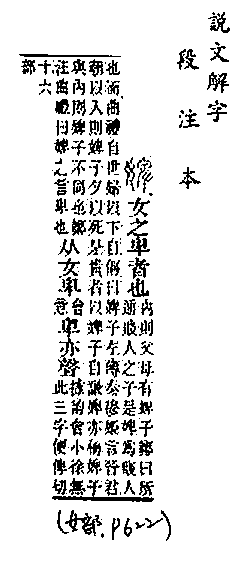 説文解字
段注本
婢
女之卑者也
内則父母有婢子鄭曰所
通賤人之子是婢爲賤人
也而曲禮自世婦以下自偁曰婢子左傳秦穆姬言晉君
朝以入則婢子夕以死是貴者以婢子自謙婢亦稱婢子
與内則婢子不同也鄭
注曲禮曰婢之言卑也
从女卑
會
意
卑亦聲
據韵會小徐無
此三字便俾切
十六
部
(女部.P622)